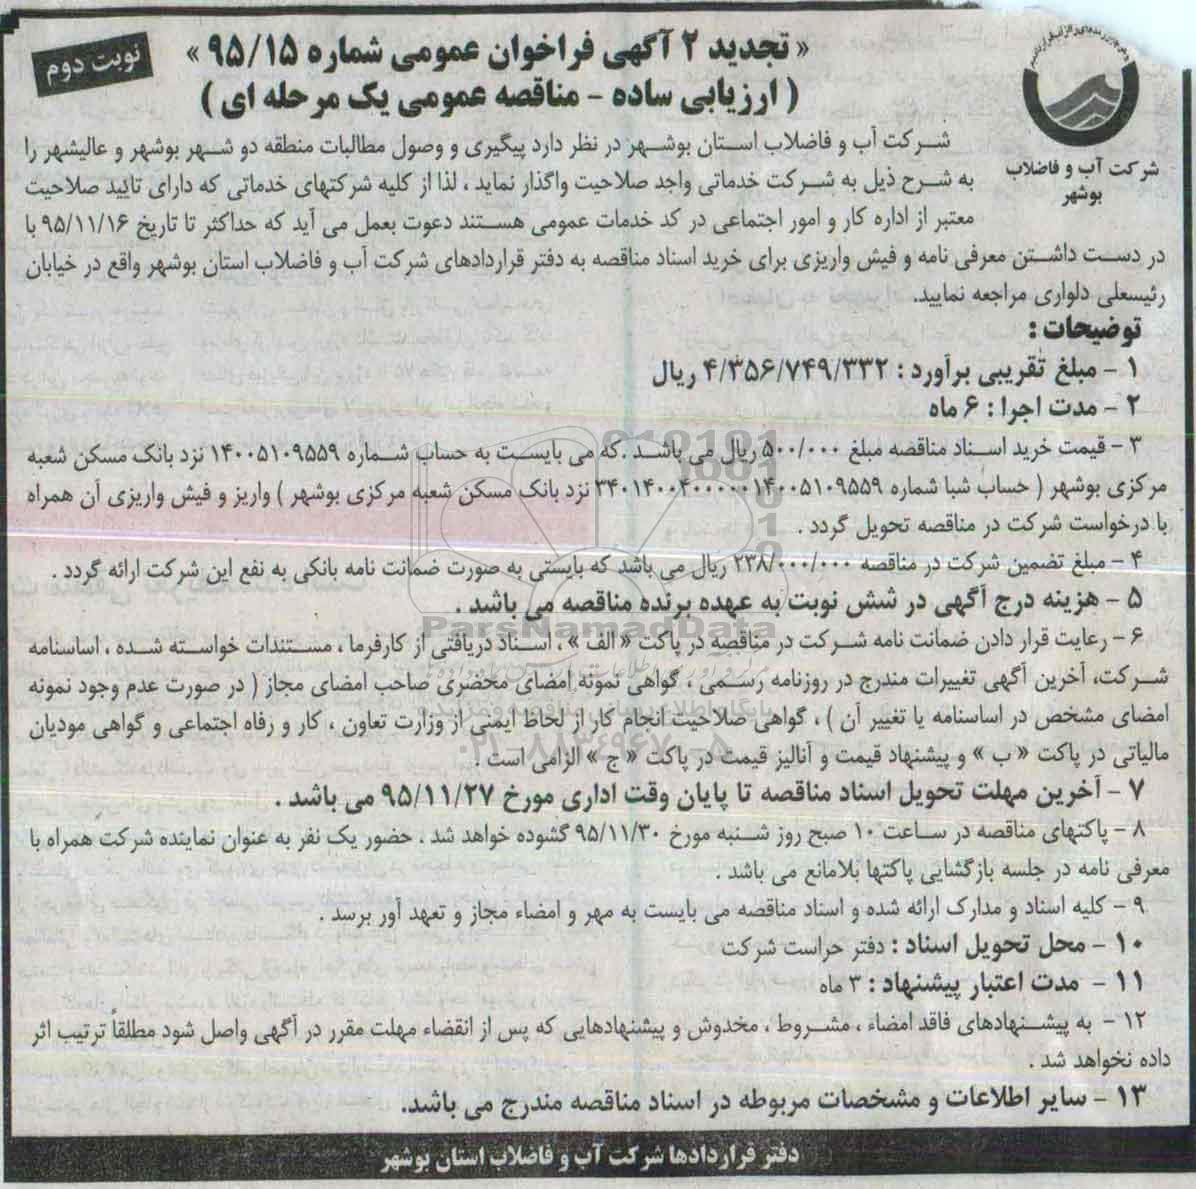 نوبت دوم
« تجدید ۲ آگهی فراخوان عمومی شماره ۹۵/۱۵ »
( ارزیابی ساده - مناقصه عمومی یک مرحله ای )
شرکت آب و فاضلاب
بوشهر
شرکت آب و فاضلاب استان بوشهر در نظر دارد پیگیری و وصول مطالبات منطقه دو شهر بوشهر و عالیشهر را
به شرح ذیل به شرکت خدماتی واجد صلاحیت واگذار نماید ، لذا از کلیه شرکتهای خدماتی که دارای تائید صلاحیت
معتبر از اداره کار و امور اجتماعی در کد خدمات عمومی هستند دعوت بعمل می آید که حداکثر تا تاریخ ۹۵/۱۱/۱۶ با
در دست داشتن معرفی نامه و فیش واریزی برای خرید اسناد مناقصه به دفتر قراردادهای شرکت آب و فاضلاب استان بوشهر واقع در خیابان
رئیسعلی دلواری مراجعه نمایید.
توضیحات :
۱ - مبلغ تقریبی برآورد : ۴/۳۵۶/۷۴۹/۳۳۲ ریال
۲ - مدت اجرا : ۶ ماه
۳ - قیمت خرید اسناد مناقصه مبلغ ۵۰۰/۰۰۰ ریال می باشد .که می بایست به حساب شماره ۱۴۰۰۵۱۰۹۵۵۹ نزد بانک مسکن شعبه
مرکزی بوشهر ( حساب شبا شماره ۳۴۰۱۴۰۰۴۰۰۰۰۰۱۴۰۰۵۱۰۹۵۵۹ نزد بانک مسکن شعبه مرکزی بوشهر ) واریز و فیش واریزی آن همراه
با درخواست شرکت در مناقصه تحویل گردد .
۴ - مبلغ تضمین شرکت در مناقصه ۲۳۸/۰۰۰/۰۰۰ ریال می باشد که بایستی به صورت ضمانت نامه بانکی به نفع این شرکت ارائه گردد .
۵ - هزینه درج آگهی در شش نوبت به عهده برنده مناقصه می باشد .
ParsNamadData
۶ - رعایت قرار دادن ضمانت نامه شرکت در مناقصه در پاکت « الف » ، اسناد دریافتی از کارفرما ، مستندات خواسته شده ، اساسنامه
شرکت، آخرین آگهی تغییرات مندرج در روزنامه رسمی ، گواهی نمونه امضای محضری صاحب امضای مجاز ( در صورت عدم وجود نمونه
امضای مشخص در اساسنامه یا تغییر آن ) ، گواهی صلاحیت انجام کار از لحاظ ایمنی از وزارت تعاون ، کار و رفاه اجتماعی و گواهی مودیان
مالیاتی در پاکت « ب » و پیشنهاد قیمت و آنالیز قیمت در پاکت « ج » الزامی است .
۷ - آخرین مهلت تحویل اسناد مناقصه تا پایان وقت اداری مورخ ۹۵/۱۱/۲۷ می باشد .
۸ - پاکتهای مناقصه در ساعت ۱۰ صبح روز شنبه مورخ ۹۵/۱۱/۳۰ گشوده خواهد شد . حضور یک نفر به عنوان نماینده شرکت همراه با
معرفی نامه در جلسه بازگشایی پاکتها بلامانع می باشد .
۹ - کلیه اسناد و مدارک ارائه شده و اسناد مناقصه می بایست به مهر و امضاء مجاز و تعهد آور برسد .
۱۰ - محل تحویل اسناد : دفتر حراست شرکت
۱۱ - مدت اعتبار پیشنهاد : ۳ ماه
۱۲ - به پیشنهادهای فاقد امضاء ، مشروط ، مخدوش و پیشنهادهایی که پس از انقضاء مهلت مقرر در آگهی واصل شود مطلقاً ترتیب اثر
داده نخواهد شد .
۱۳ - سایر اطلاعات و مشخصات مربوطه در اسناد مناقصه مندرج می باشد.
دفتر قراردادها شرکت آب و فاضلاب استان بوشهر